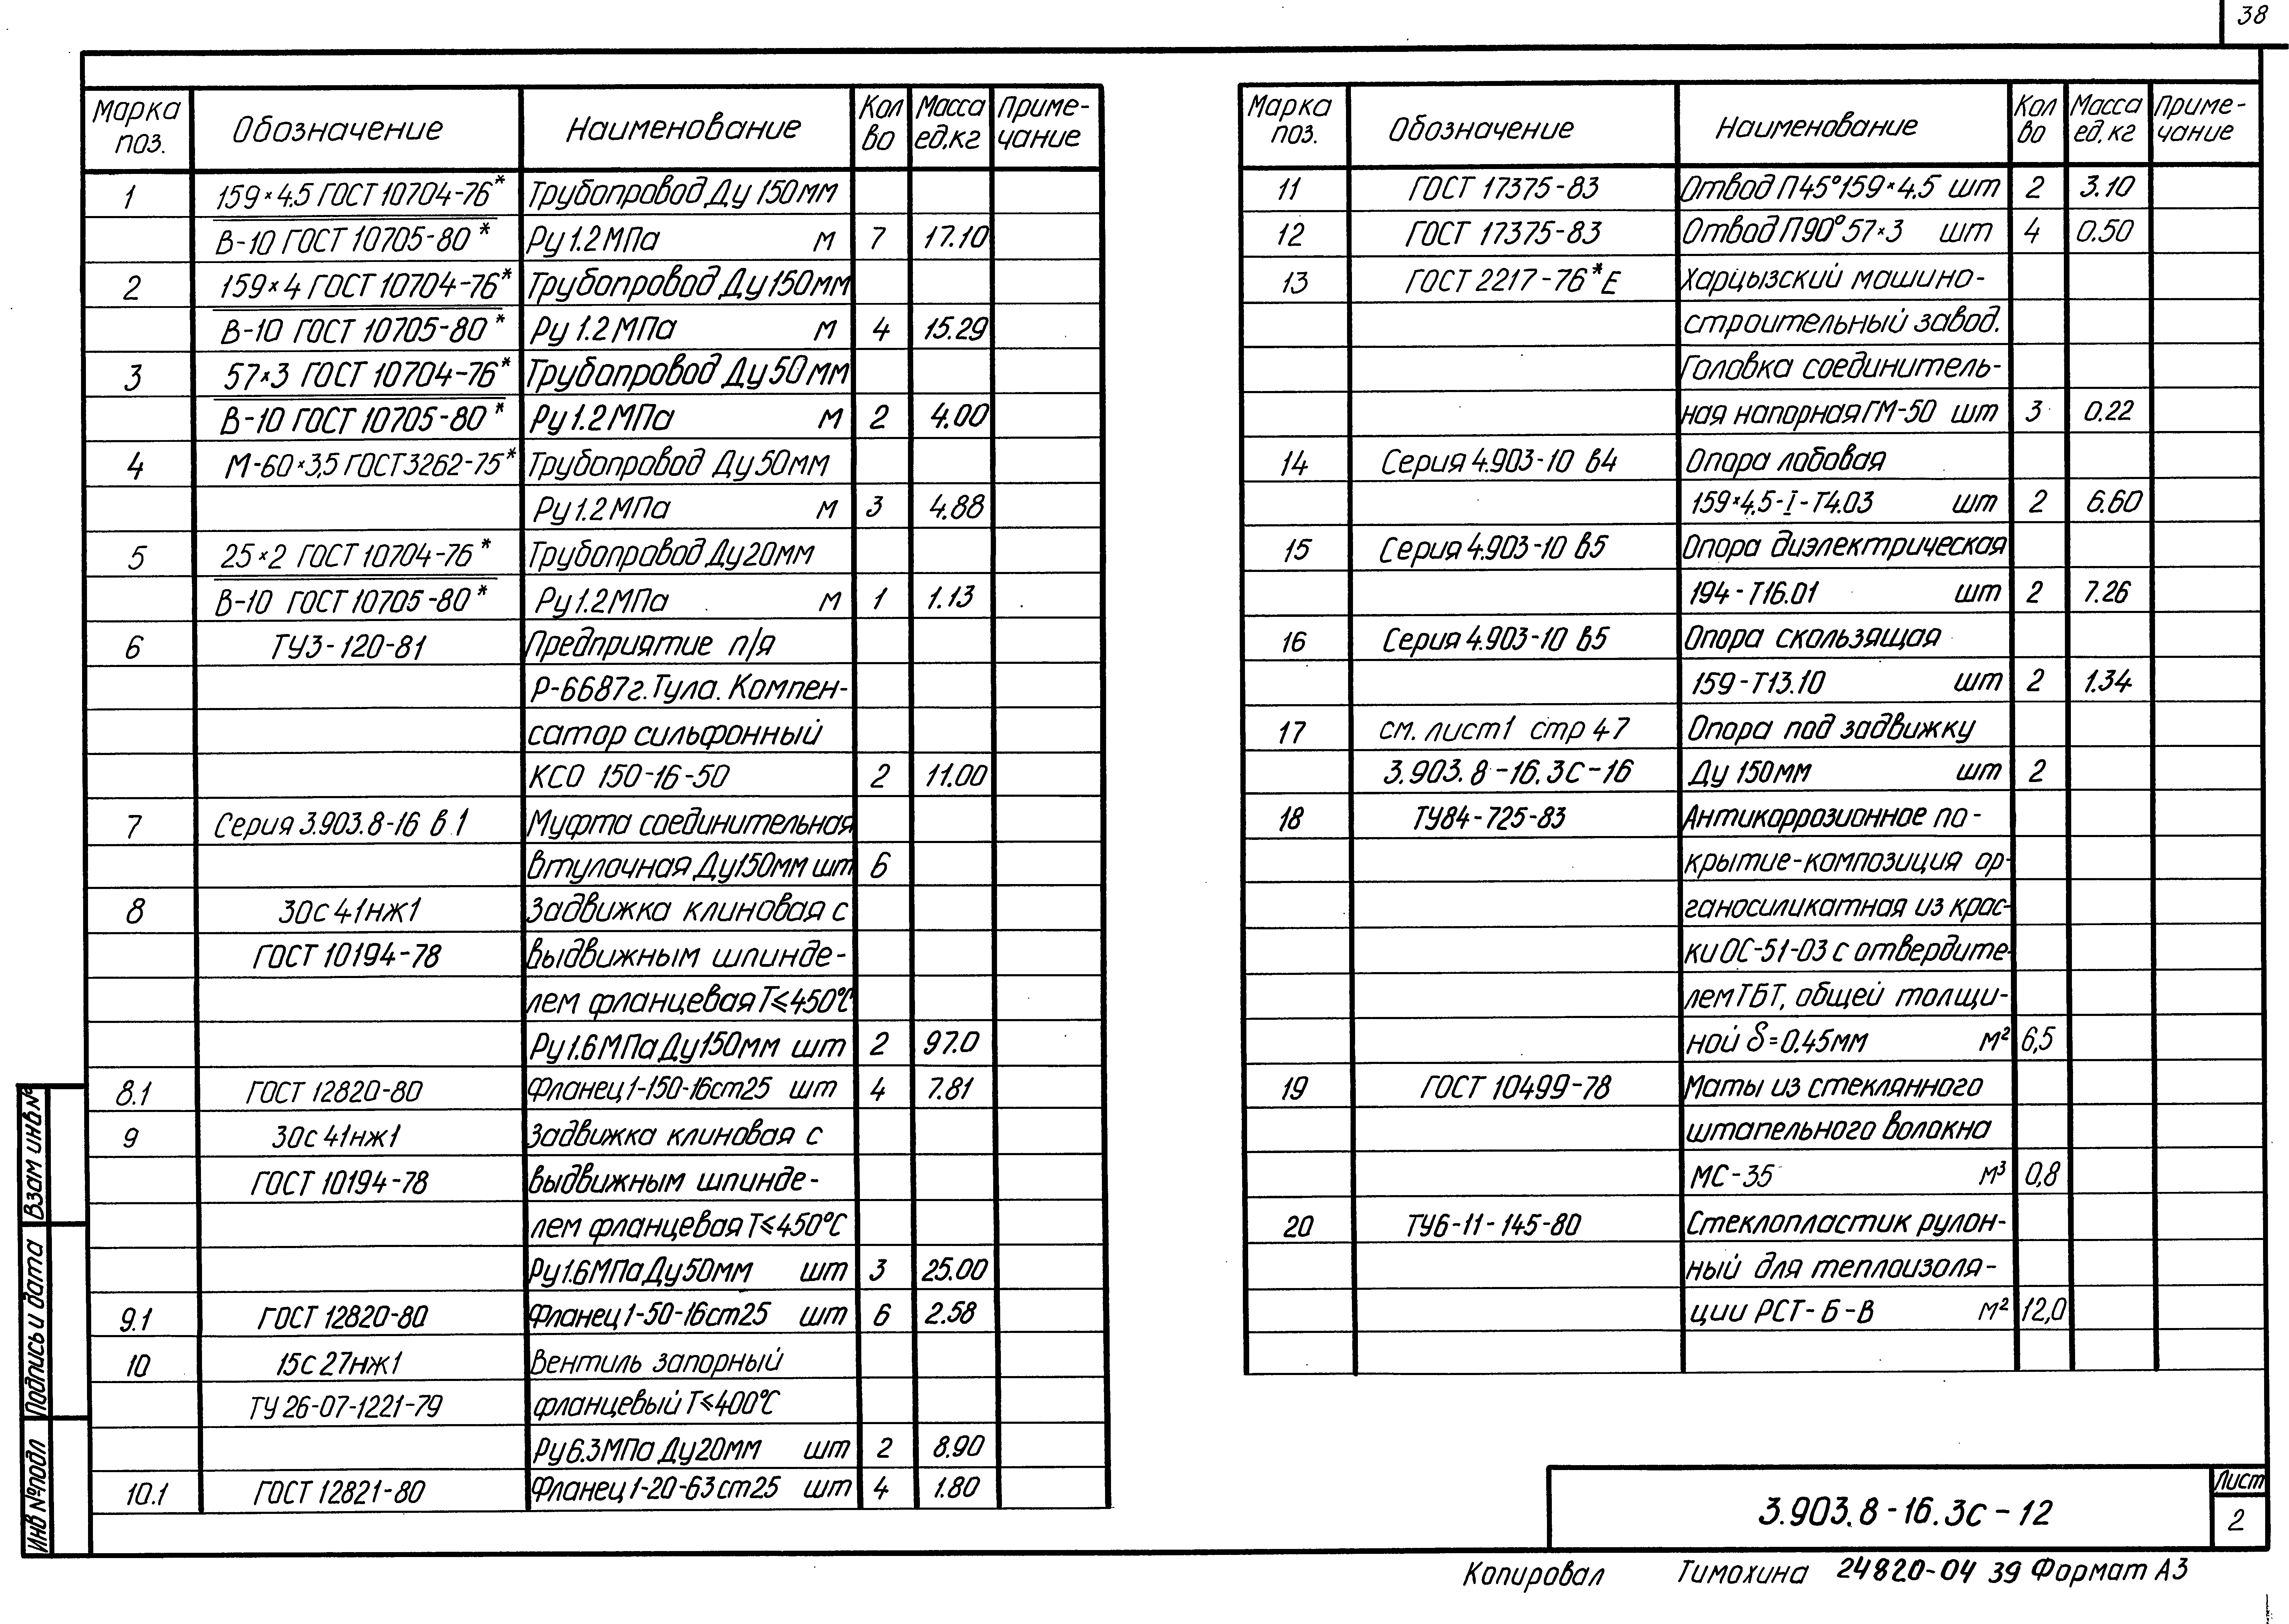 38
Марка поз. Обозначение Наименование Кол во Масса ед.кг Приме-чание
1 159×4.5 ГОСТ 10704-76* Трубопровод Ду 150мм
В-10 ГОСТ 10705-80* Ру 1.2 МПа м 7 17.10
2 159×4 ГОСТ 10704-76* Трубопровод Ду 150мм
В-10 ГОСТ 10705-80* Ру 1.2 МПа м 4 15.29
3 57×3 ГОСТ 10704-76* Трубопровод Ду 50мм
В-10 ГОСТ 10705-80* Ру 1.2 МПа м 2 4.00
4 М-60×3,5 ГОСТ 3262-75* Трубопровод Ду 50мм
Ру 1.2 МПа м 3 4.88
5 25×2 ГОСТ 10704-76* Трубопровод Ду 20мм
В-10 ГОСТ 10705-80* Ру 1.2 МПа м 1 1.13
6 ТУ3-120-81 Предприятие п/я
Р-6687 г. Тула. Компен-
сатор сильфонный
КСО 150-16-50 2 11.00
7 Серия 3.903.8-16 в.1 Муфта соединительная
втулочная Ду150мм шт 6
8 30с 41нж1 Задвижка клиновая с
ГОСТ 10194-78 выдвижным шпинде-
лем фланцевая Т≤450°С
Ру 1.6 МПа Ду 150мм шт 2 97.0
8.1 ГОСТ 12820-80 Фланец 1-150-16ст25 шт 4 7.81
9 30с 41нж1 Задвижка клиновая с
ГОСТ 10194-78 выдвижным шпинде-
лем фланцевая Т≤450°С
Ру 1.6 МПа Ду 50мм шт 3 25.00
9.1 ГОСТ 12820-80 Фланец 1-50-16ст25 шт 6 2.58
10 15с 27нж1 Вентиль запорный
ТУ 26-07-1221-79 фланцевый Т≤400°С
Ру 6.3 МПа Ду 20мм шт 2 8.90
10.1 ГОСТ 12821-80 Фланец 1-20-63 ст25 шт 4 1.80
Марка поз. Обозначение Наименование Кол во Масса ед.кг Приме-чание
11 ГОСТ 17375-83 Отвод П45°159×4.5 шт 2 3.10
12 ГОСТ 17375-83 Отвод П90°57×3 шт 4 0.50
13 ГОСТ 2217-76*Е Харцызский машино-
строительный завод.
Головка соединитель-
ная напорная ГМ-50 шт 3 0.22
14 Серия 4.903-10 в4 Опора лобовая
159×4.5-I-Т4.03 шт 2 6.60
15 Серия 4.903-10 в5 Опора диэлектрическая
194-Т16.01 шт 2 7.26
16 Серия 4.903-10 в5 Опора скользящая
159-Т13.10 шт 2 1.34
17 см. лист 1 стр 47 Опора под задвижку
3.903.8-16.3с-16 Ду 150мм шт 2
18 ТУ84-725-83 Антикоррозионное по-
крытие-композиция ор-
ганосиликатная из крас-
ки ОС-51-03 с отвердите-
лем ТБТ, общей толщи-
ной δ=0.45мм м² 6,5
19 ГОСТ 10499-78 Маты из стеклянного
штапельного волокна
МС-35 м³ 0,8
20 ТУ6-11-145-80 Стеклопластик рулон-
ный для теплоизоля-
ции РСТ-Б-В м² 12,0
Взам инв №
Подпись и дата
Инв № подл
3.903.8-16.3с-12
Лист
2
Копировал Тимохина 24820-04 39 Формат А3